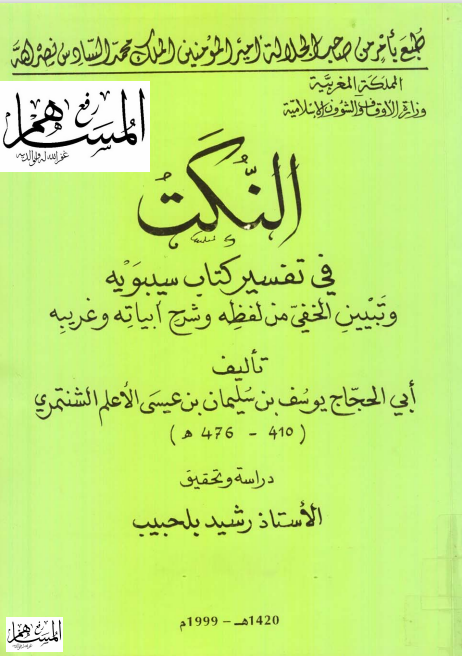 طبع بأمر من صاحب الجلالة أمير المؤمنين الملك محمد السادس نصره الله
المملكة المغربية
وزارة الأوقاف والشؤون الإسلامية
رفع
المساهم
غفر الله له ولوالديه
النُّكَتُ
في تفسير كتاب سيبويه
وتبيين الخفيّ من لفظه وشرح أبياته وغريبه
تأليف
أبي الحجّاج يوسف بن سليمان بن عيسى الأعلم الشنتمري
(410 - 476 هـ)
دراسة وتحقيق
الأستاذ رشيد بلحبيب
1420هـ – 1999م
رفع
المساهم